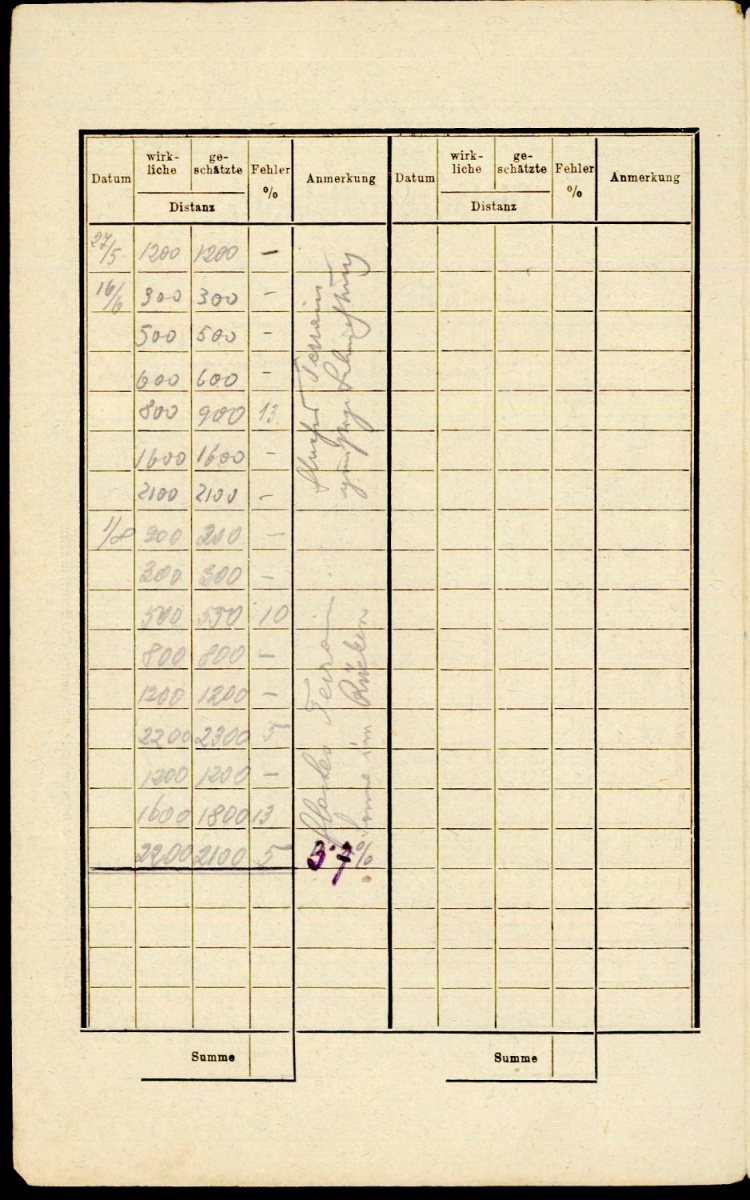 Datum wirk-liche ge-schätzte Fehler % Anmerkung Datum wirk-liche ge-schätzte Fehler % Anmerkung
Distanz Distanz
27/5 1200 1200 —
16/6 300 300 -
500 500 -
600 600 -
800 900 13
1600 1600 -
2100 2100 -
Terrain
1/8 200 200 —
300 300 -
500 550 10
800 800 —
1200 1200 -
2200 2300 5
1200 1200 —
1600 1800 13
2200 2100 5
Terrain
Sonne im Rücken
%
Summe Summe